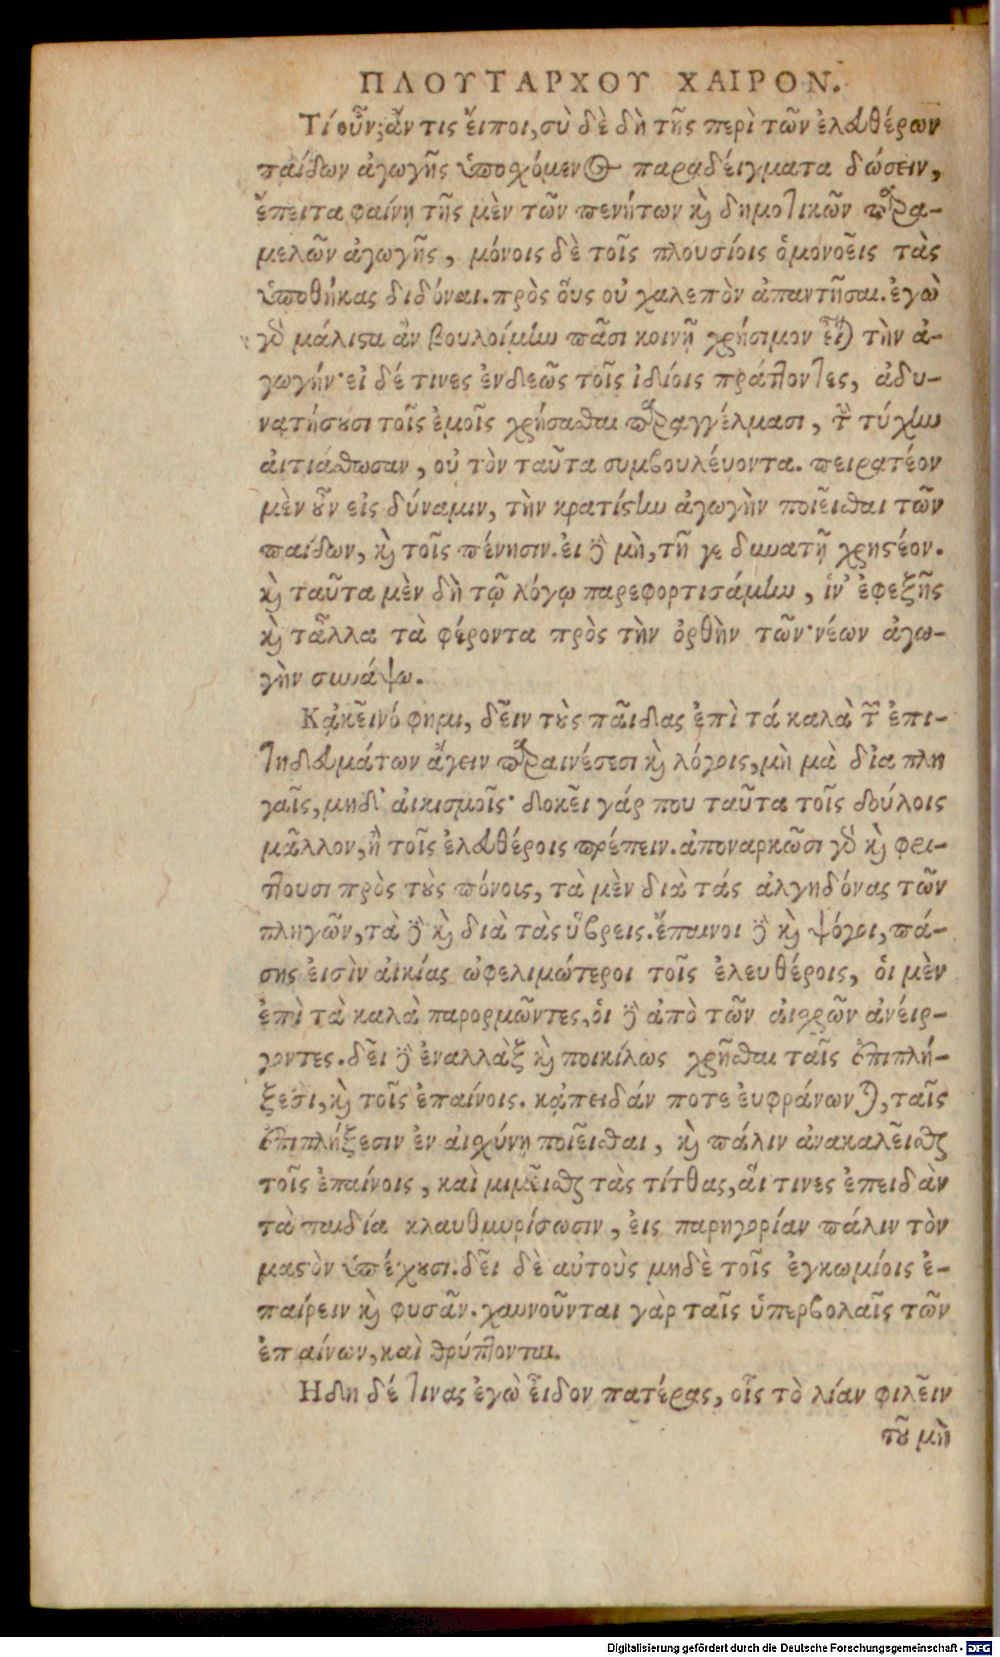 ΠΛΟΥΤΑΡΧΟΥ ΧΑΙΡΟΝ.
Τί οὖν; ἄν τις εἴποι, σὺ δὲ δὴ τῆς περὶ τῶν ἐλευθέρων
παίδων ἀγωγῆς ὑποχόμενος παραδείγματα δώσειν,
ἔπειτα φαίνῃ τῆς μὲν τῶν πενήτων κὶ δημοτικῶν παρα-
μελῶν ἀγωγῆς, μόνοις δὲ τοῖς πλουσίοις ὁμονοεῖς τὰς
ὑποθήκας διδόναι. πρὸς οὓς οὐ χαλεπὸν ἀπαντῆσαι. ἐγὼ
γὸ μάλιστα ἂν βουλοίμην πᾶσι κοινῇ χρήσιμον εἶναι τὴν ἀ-
γωγήν· εἰ δέ τινες ἐνδεῶς τοῖς ἰδίοις πράττοντες, ἀδυ-
νατήσουσι τοῖς ἐμοῖς χρήσασθαι παραγγέλμασι, τὴν τύχην
αἰτιάσθωσαν, οὐ τὸν ταῦτα συμβουλέυοντα. πειρατέον
μὲν οὖν εἰς δύναμιν, τὴν κρατίστην ἀγωγὴν ποιεῖσθαι τῶν
παίδων, κὶ τοῖς πένησιν. ἐι δὲ μὴ, τῇ γε δυνατῇ χρηστέον.
κὶ ταῦτα μὲν δὴ τῷ λόγῳ παρεφορτισάμην, ἱν᾽ ἐφεξῆς
κὶ τἆλλα τὰ φέροντα πρὸς τὴν ὀρθὴν τῶν νέων ἀγω-
γὴν συνάψω.
Κἀκεῖνό φημι, δεῖν τοὺς παῖδας ἐπὶ τά καλὰ τῶν ἐπι-
τηδευμάτων ἄγειν παραινέσεσι κὶ λόγοις, μὴ μὰ δία πλη
γαῖς, μηδ᾽ αἰκισμοῖς· δοκεῖ γάρ που ταῦτα τοῖς δούλοις
μᾶλλον, ἢ τοῖς ἐλευθέροις πρέπειν. ἀποναρκῶσι γὸ κὶ φρι-
ττουσι πρὸς τοὺς πόνοις, τὰ μὲν διὰ τάς ἀλγηδόνας τῶν
πληγῶν, τὰ δὲ κὶ διὰ τὰς ὕβρεις. ἔπαινοι δὲ κὶ ψόγοι, πά-
σης ἐισὶν αἰκίας ὠφελιμώτεροι τοῖς ἐλευθέροις, ὁι μὲν
ἐπὶ τὰ καλὰ παρορμῶντες, ὁι δὲ ἀπὸ τῶν αἰσχρῶν ἀνέιρ-
γοντες. δεῖ δὲ ἐναλλὰξ κὶ ποικίλως χρῆσθαι ταῖς ἐπιπλή-
ξεσι, κὶ τοῖς ἐπαίνοις. κἀπειδάν ποτε ἐυφράνωνται, ταῖς
ἐπιπλήξεσιν ἐν αἰσχύνῃ ποιεῖσθαι, κὶ πάλιν ἀνακαλεῖσθαι
τοῖς ἐπαίνοις, καὶ μιμεῖσθαι τὰς τίτθας, αἵ τινες ἐπειδὰν
τὰ παιδία κλαυθμυρίσωσιν, ἐις παρηγορίαν πάλιν τὸν
μαστὸν ὑπέχουσι. δεῖ δὲ αὐτοὺς μηδὲ τοῖς ἐγκωμίοις ἐ-
παίρειν κὶ φυσᾶν. χαυνοῦνται γὰρ ταῖς ὑπερβολαῖς τῶν
ἐπαίνων, καὶ θρύπτονται.
Ηδη δέ τινας ἐγὼ εἶδον πατέρας, οἷς τὸ λίαν φιλεῖν
τοῦ μὴ
Digitalisierung gefördert durch die Deutsche Forschungsgemeinschaft - DFG